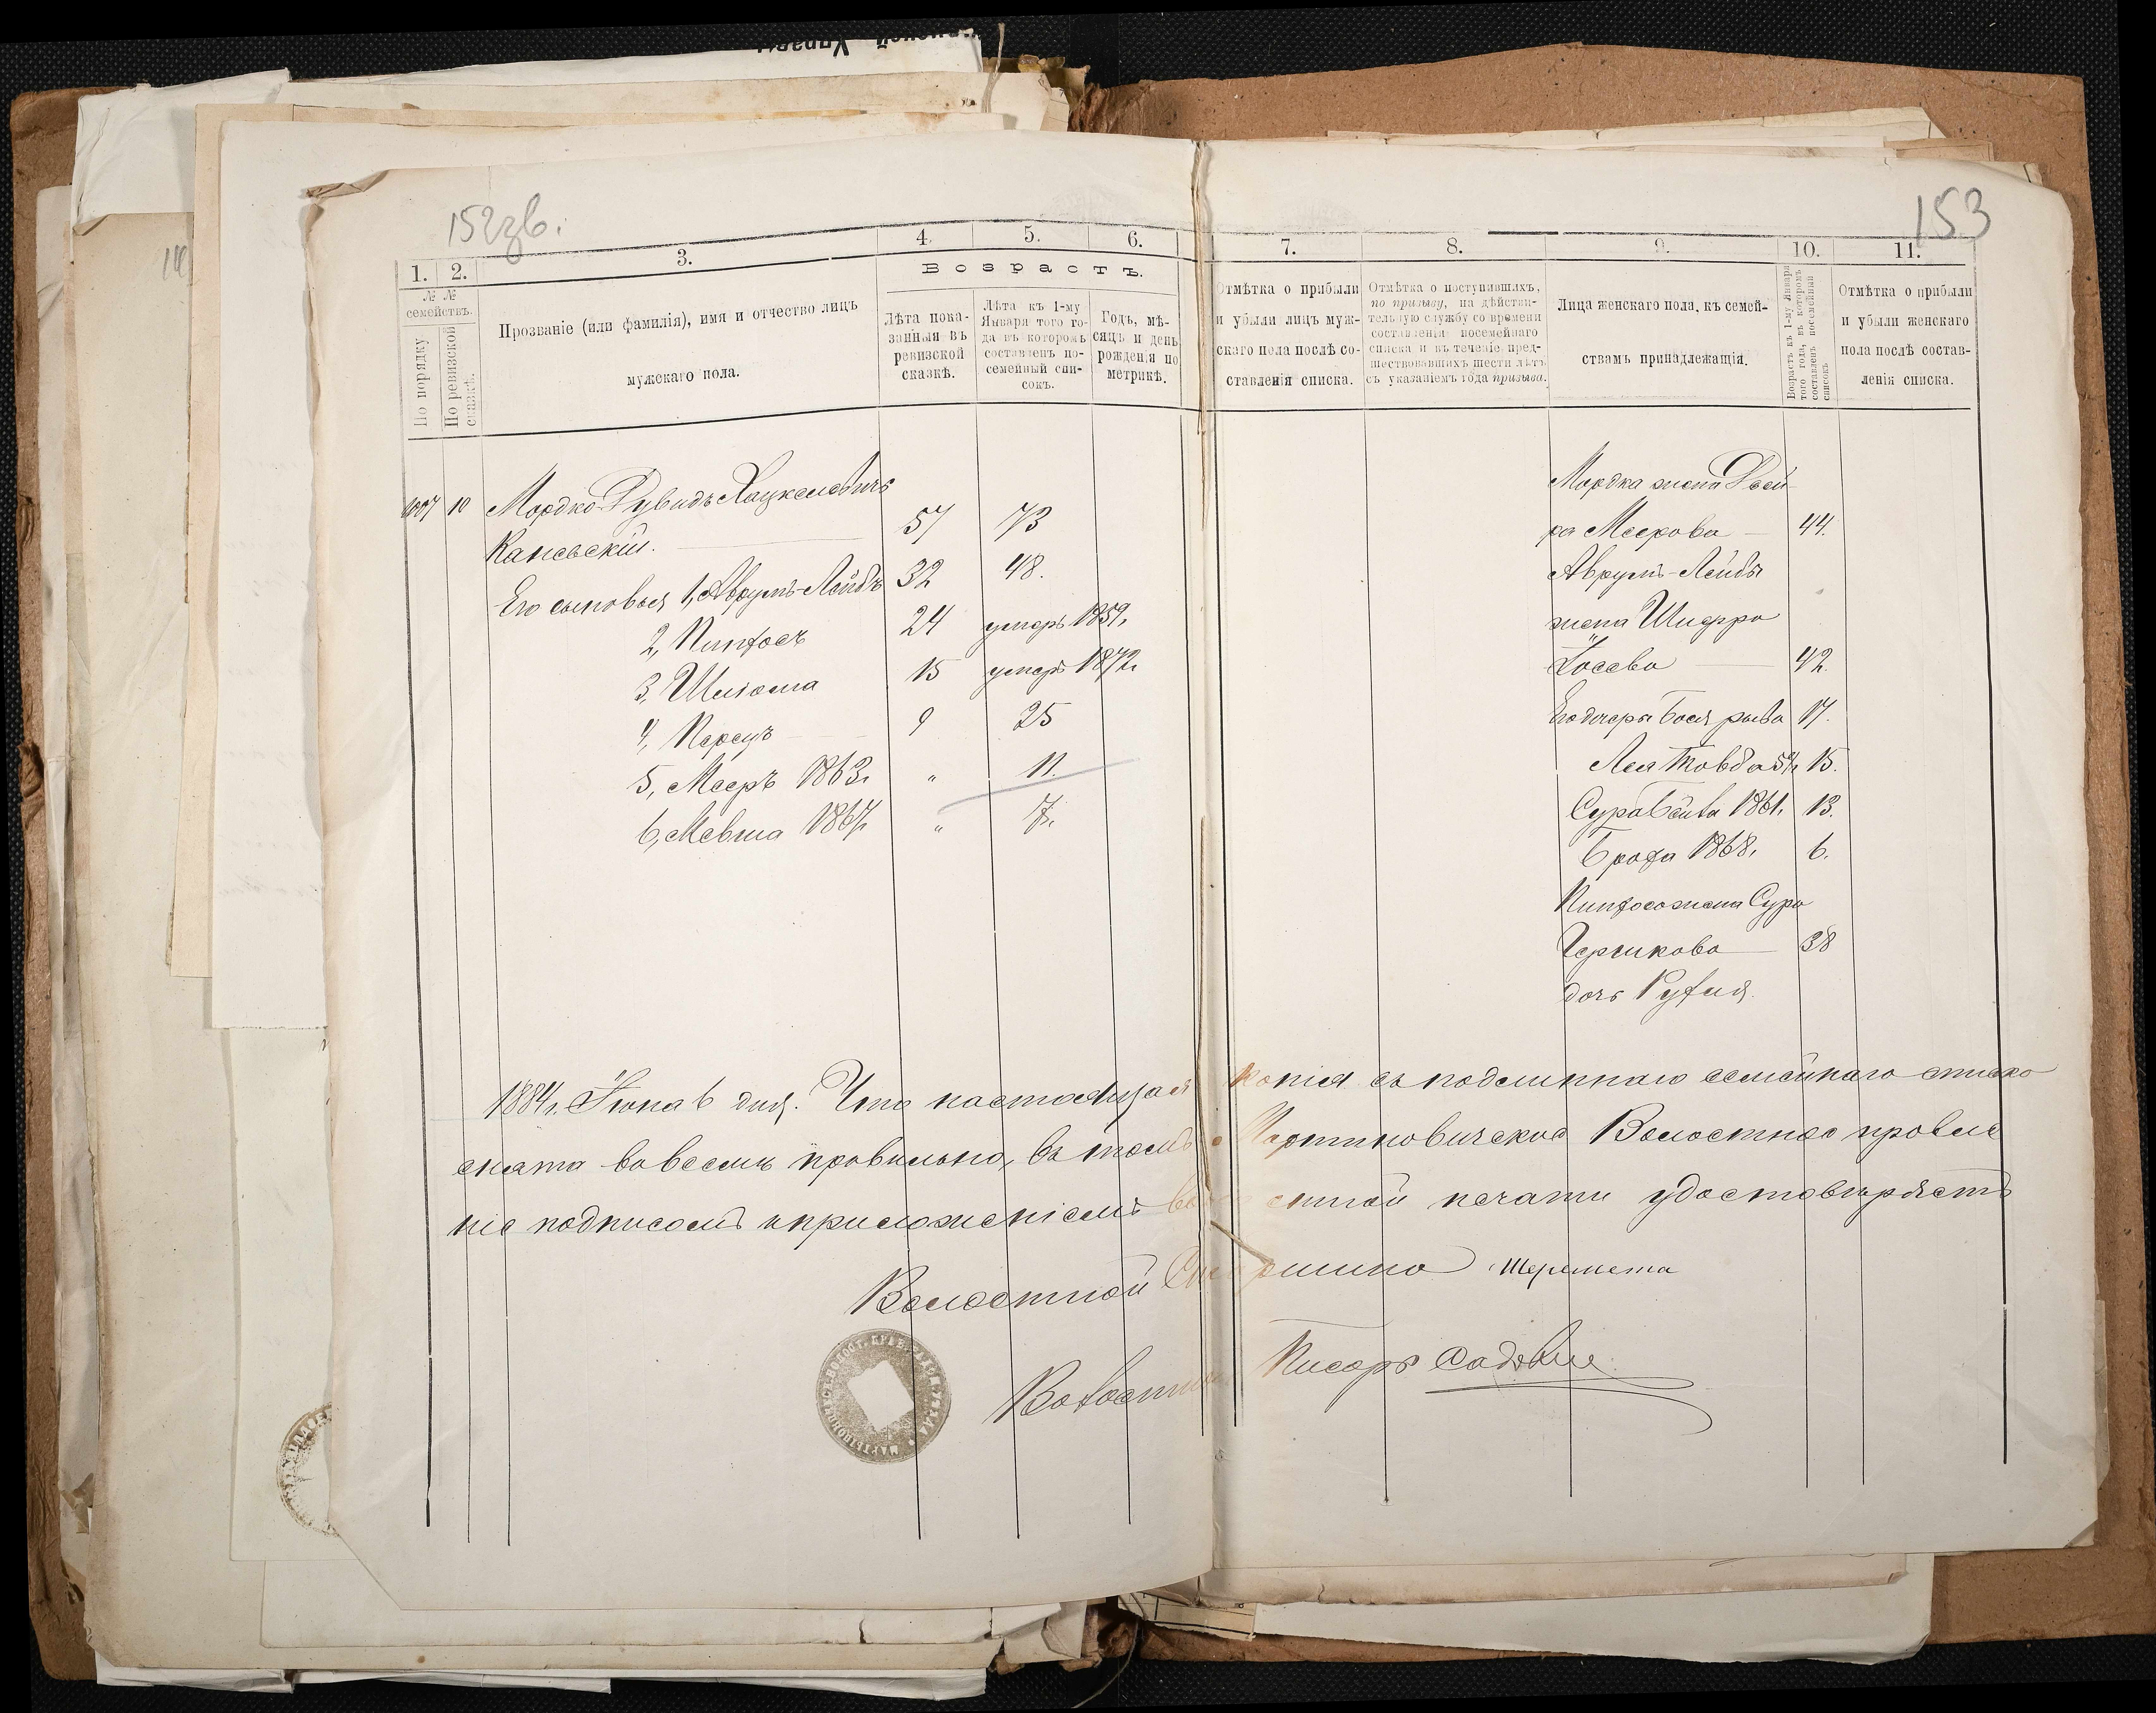 152зв.
153
1. 2. 3. 4. 5. 6. 7. 8. 9. 10. 11.
№ № семействъ.
По порядку
По ревизской сказкѣ.
Прозваніе (или фамилія), имя и отчество лицъ
мужскаго пола.
Возрастъ.
Лѣта пока-
занныя въ
ревизской
сказкѣ.
Лѣта къ 1-му
Января того го-
да въ которомъ
составленъ по-
семейный спи-
сокъ.
Годъ, мѣ-
сяцъ и день
рожденія по
метрикѣ.
Отмѣтка о прибыли
и убыли лицъ муж-
скаго пола послѣ со-
ставленія списка.
Отмѣтка о поступившихъ,
по призыву, на дѣйстви-
тельную службу со времени
составленія посемейнаго
списка и въ теченіе пред-
шествовавшихъ шести лѣтъ
съ указаніемъ года призыва.
Лица женскаго пола, къ семей-
ствамъ принадлежащія.
Возрастъ къ 1-му Января
того года, въ которомъ
составленъ посемейный
списокъ
Отмѣтка о прибыли
и убыли женскаго
пола послѣ состав-
ленія списка.
10 Мордко-Дувидъ Хацкелевичъ
Каневскій. 57 73
Его сыновья 1, Аврумъ-Лейбъ 32 48.
2, Пинхосъ 24 умеръ 1859г.
3, Шліома 15 умеръ 1872г.
4, Перецъ 9 25
5, Мееръ 1863г. " 11.
6, Мевша 1867г. " 7.
Мордка жена Двей-
ра Меерова 44.
Аврумъ-Лейбы
жена Шифра
Іосева 42.
Его дочери Бася рыва 17.
Лея Товба 15.
Сура Бейла 1861г. 13.
Броха 1868г. 6.
Пинхоса жена Сура
Гершкова 38
дочь Рухля.
1884г. Іюня 6 дня. Что настоящая копія съ подлиннаго семейнаго списка
снята во всемъ правильно, въ томъ Мартиновичское Волостное правле
ніе подписомъ и приложеніемъ печати удостовѣряетъ
Волостной Старшина Шеремета
Волостной Писарь